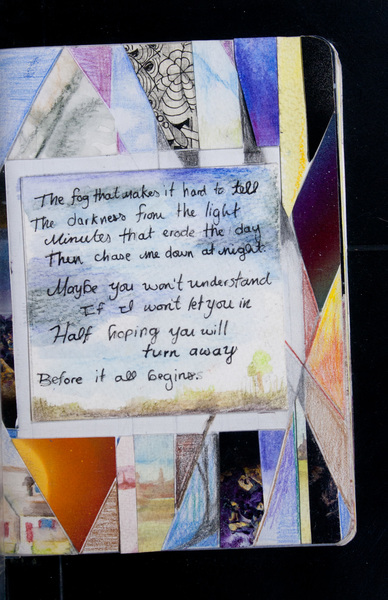 The fog that makes it hard to tell
The darkness from the light
Minutes that erode the day
Then chase me down at night.
Maybe you won't understand
If I won't let you in
Half hoping you will
turn away
Before it all begins.